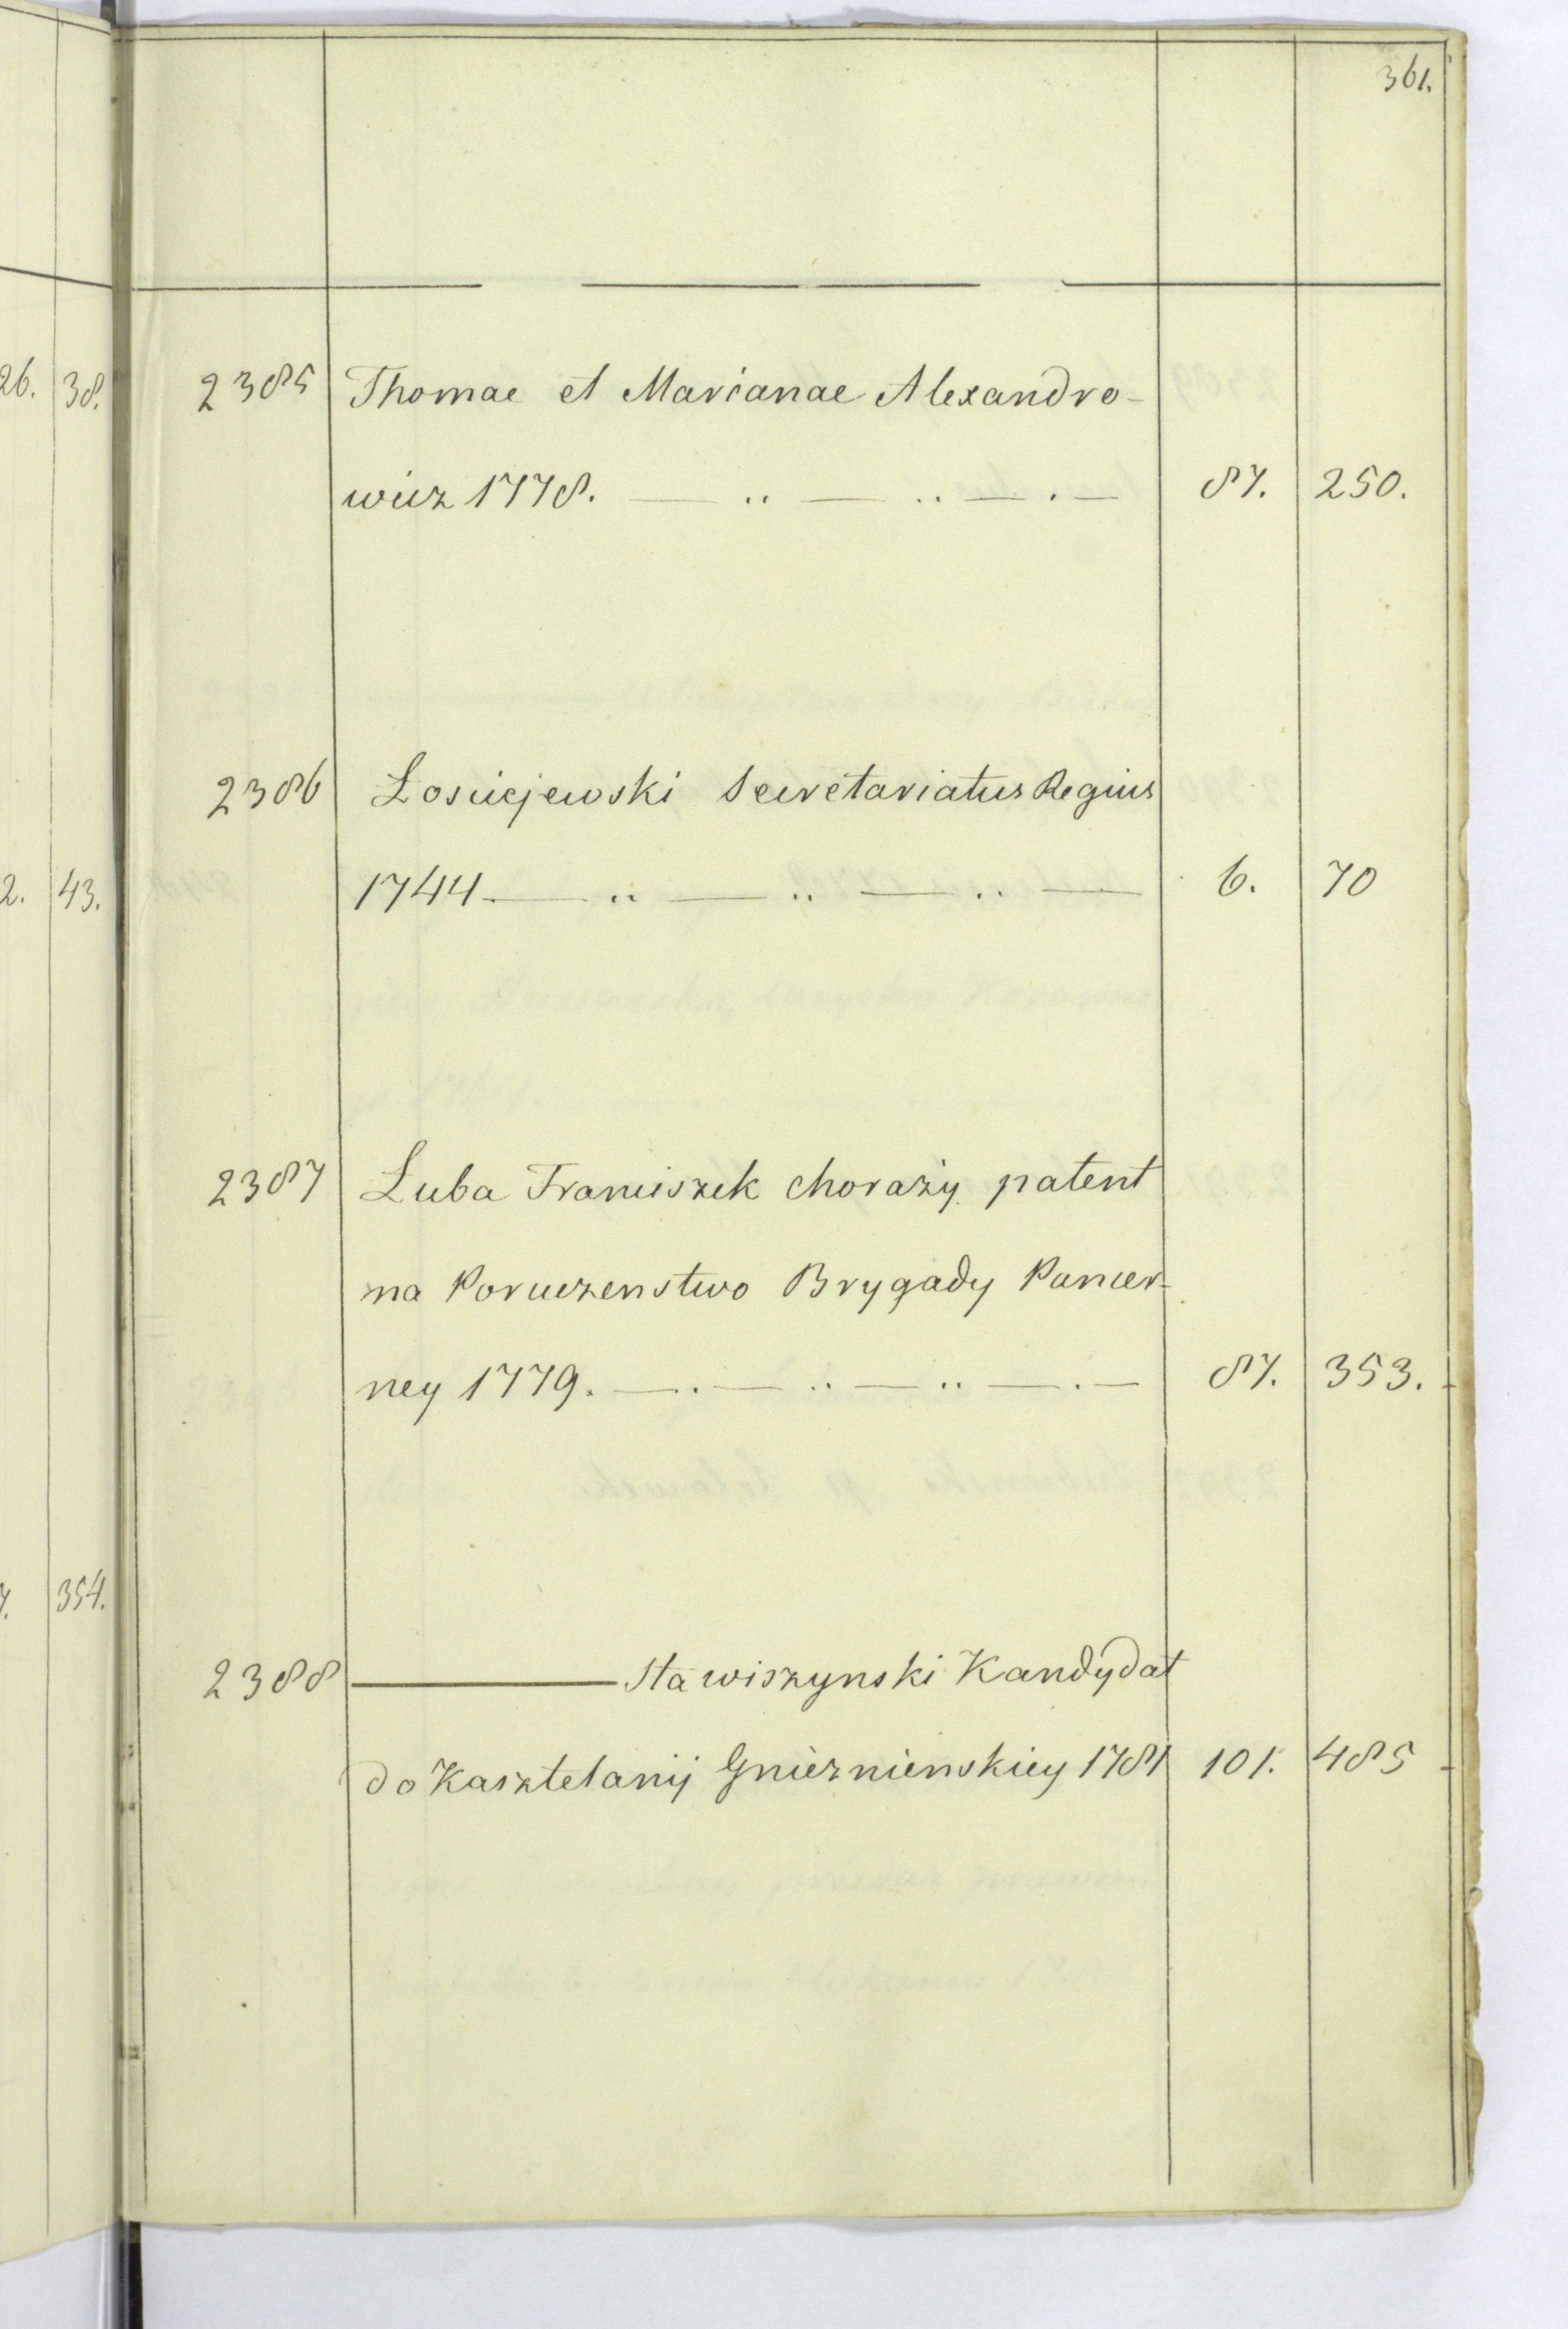 361.
26. 38.
2385 Thomae et Marianae Alexandro-
wicz 1778. — .. — .. — . — 87. 250.
2386 Łosiejewski Secretariatus Regius
2. 43.
1744 — .. — .. — .. — 6. 70
2387 Luba Franciszek chorąży patent
na Poruczenstwo Brygady Pancer-
ney 1779. — . — .. — .. — . — 87. 353.
354.
2388 ——— Stawiszynski Kandydat
do Kasztelanij Gnieznienskiey 1781 101. 485